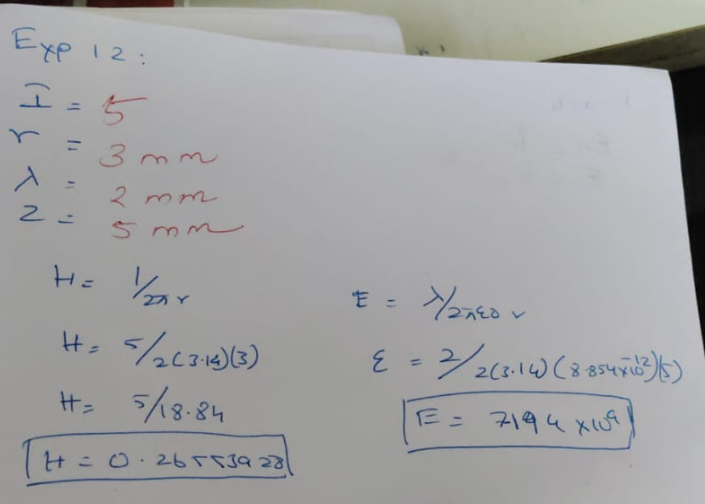 Exp 12:
I = 5
r = 3 mm
λ = 2 mm
Z = 5 mm
H = 1/2πr
H = 5/2(3.14)(3)
H = 5/18.84
H = 0.26553928
E = λ/2πε0 r
ε = 2/2(3.14)(8.854×10⁻¹²)(5)
E = 7194 ×10⁹